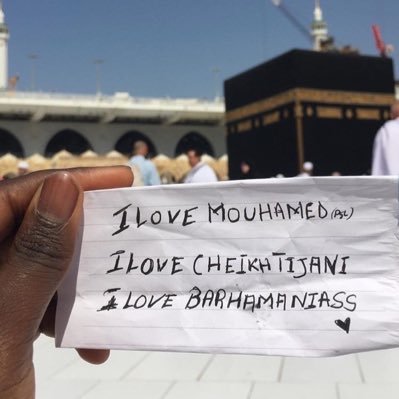 I LOVE MOUHAMED (PSL)
I LOVE CHEIKH TIJANI
I LOVE BARHAMA NIASS